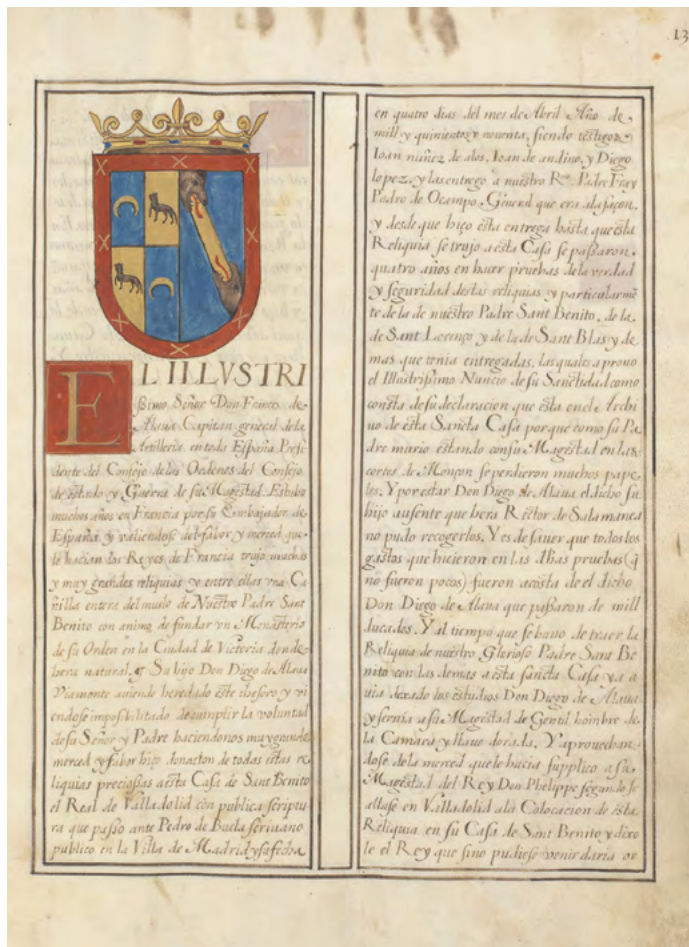 13
EL ILLVSTRI
ßimo Señor Don Frances de
Alaua Capitan general de la
Artilleria en toda España Presi
dente del Consejo de las Ordenes del Consejo
de estado y Guerra de su Magestad. Estubo
muchos años en Francia por su Embajador de
España, y valiendose del fabor y merced que
le hacian los Reyes de Francia trajo muchas
y muy grandes reliquias y entre ellas vna Ca
ñilla entera del muslo de Nuestro Padre Sant
Benito con animo de fundar vn Monasterio
de su Orden en la Ciudad de Victoria donde
hera natural. ¶ Su hijo Don Diego de Alaua
Viamonte auiendo heredado este thesoro y vi
endose imposibilitado de cumplir la voluntad
de su Señor y Padre haciendonos muy grande
merced y fabor hiço donacion de todas estas re
liquias preciosas a esta Casa de Sant Benito
el Real de Valladolid con publica scriptu
ra que passo ante Pedro de scriuano
publico en la Villa de Madrid y su fecha
en quatro dias del mes de Abril Año de
mill y quinientos y nouenta, siendo testigos
Ioan nuñez de alos, Ioan de andino, y Diego
lopez, y las entrego a nuestro Rmo. Padre Fray
Pedro de Ocampo General que era a la saçon,
y desde que hiço esta entrega hasta que esta
Reliquia se trujo a esta Casa se passaron
quatro años en hacer pruebas de la verdad
y seguridad destas reliquias y particularmē
te de la de nuestro Padre Sant Benito, de la
de Sant Lorenço y de la de Sant Blas y de
mas que tenia entregadas, las quales aprouo
el Illustrissimo Nuncio de su Sanctidad como
consta de su declaracion que esta en el Archi
uo de esta Sancta Casa porque como su Pa
dre murio estando con su Magestad en las
cortes de Monçon se perdieron muchos pape
les. Y por estar Don Diego de Alaua el dicho su
hijo ausente que hera Rector de Salamanca
no pudo recogerlos. Y es de sauer que todos los
gastos que hicieron en las dhas pruebas (q̄
no fueron pocos) fueron acosta de el dicho
Don Diego de Alaua que passaron de mill
ducados. Y al tiempo que se houo de traer la
Reliquia de nuestro Glorioso Padre Sant Be
nito con las demas a esta sancta Casa ya a
uia dexado los estudios Don Diego de Alaua
y seruia a su Magestad de Gentil hombre de
la Camara y llaue dorada. Y aprouechan
dose de la merced que le hacia supplico a su
Magestad del Rey Don Phelippe segundo se
allase en Valladolid a la Colocacion de esta
Reliquia en su Casa de Sant Benito y dixo
le el Rey que si no pudiese venir daria or